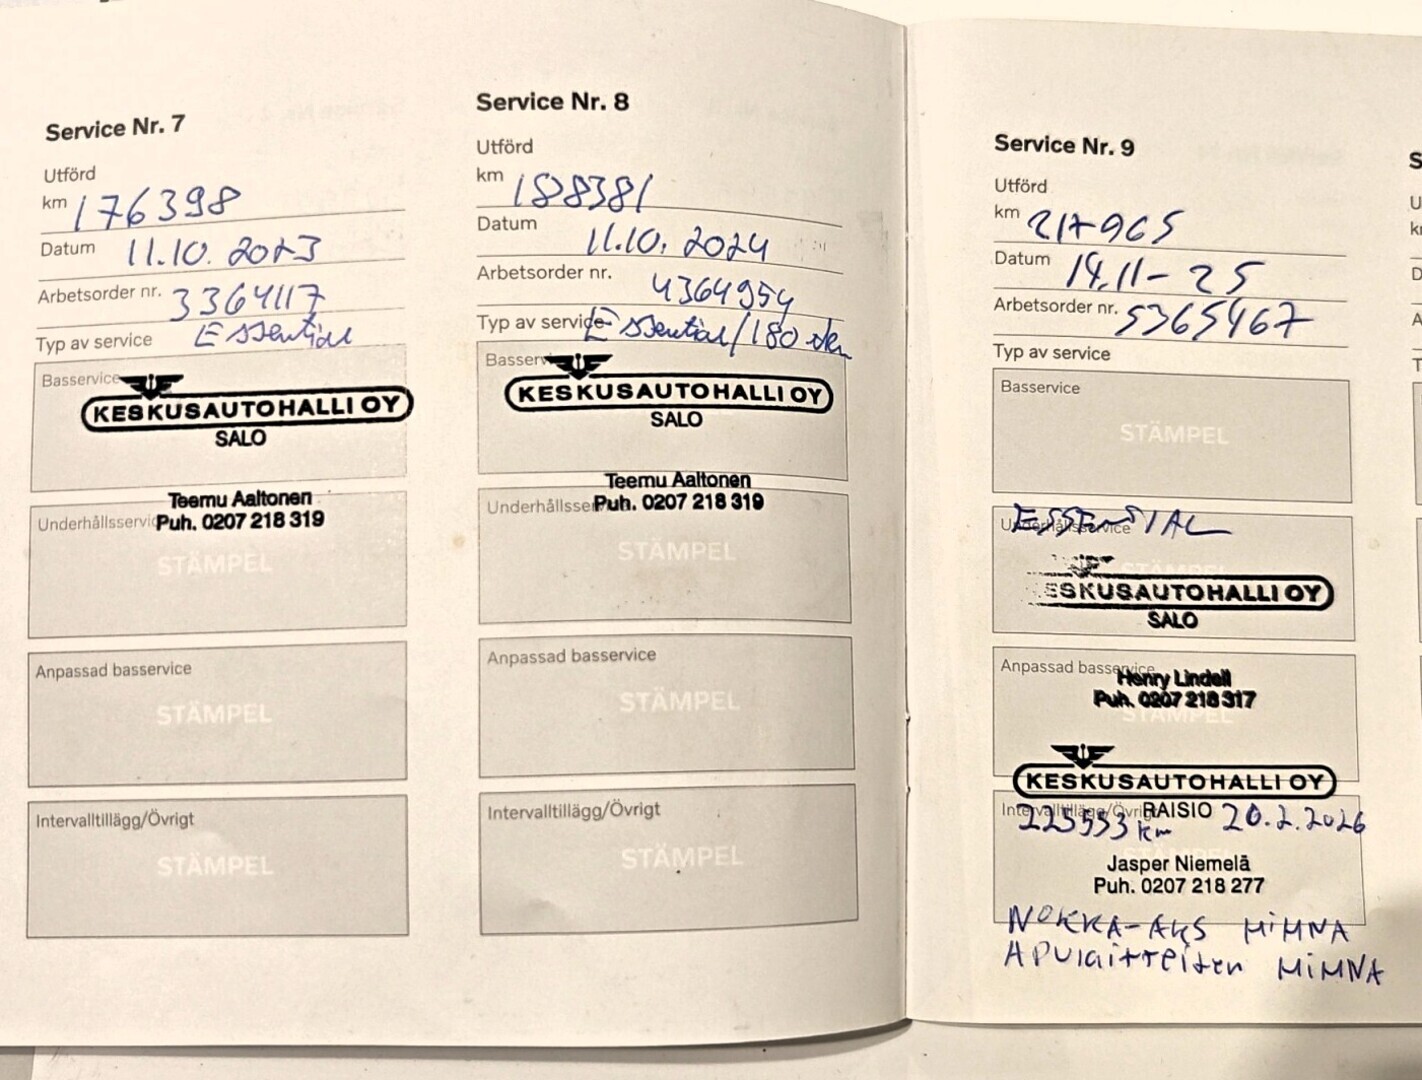 Service Nr. 7
Utförd
km 176398
Datum 11.10. 2023
Arbetsorder nr. 3364117
Typ av service Essential
Basservice
KESKUSAUTOHALLI OY
SALO
Teemu Aaltonen
Puh. 0207 218 319
Underhållsservice
STÄMPEL
Anpassad basservice
STÄMPEL
Intervalltillägg/Övrigt
STÄMPEL
Service Nr. 8
Utförd
km 188381
Datum 11.10. 2024
Arbetsorder nr. 4364954
Typ av service Essential/180 dkm
Basservice
KESKUSAUTOHALLI OY
SALO
Teemu Aaltonen
Puh. 0207 218 319
Underhållsservice
STÄMPEL
Anpassad basservice
STÄMPEL
Intervalltillägg/Övrigt
STÄMPEL
Service Nr. 9
Utförd
km 217965
Datum 14.11-25
Arbetsorder nr. 5365467
Typ av service
Basservice
STÄMPEL
ESSENSIAL
Underhållsservice
STÄMPEL
KESKUSAUTOHALLI OY
SALO
Anpassad basservice
Henry Lindell
Puh. 0207 218 317
STÄMPEL
KESKUSAUTOHALLI OY
Intervalltillägg/Övrigt RAISIO
225553 km 20.2.2026
Jasper Niemelä
Puh. 0207 218 277
NOKKA-AKS HIHNA
APULAITTEITEN HIHNA